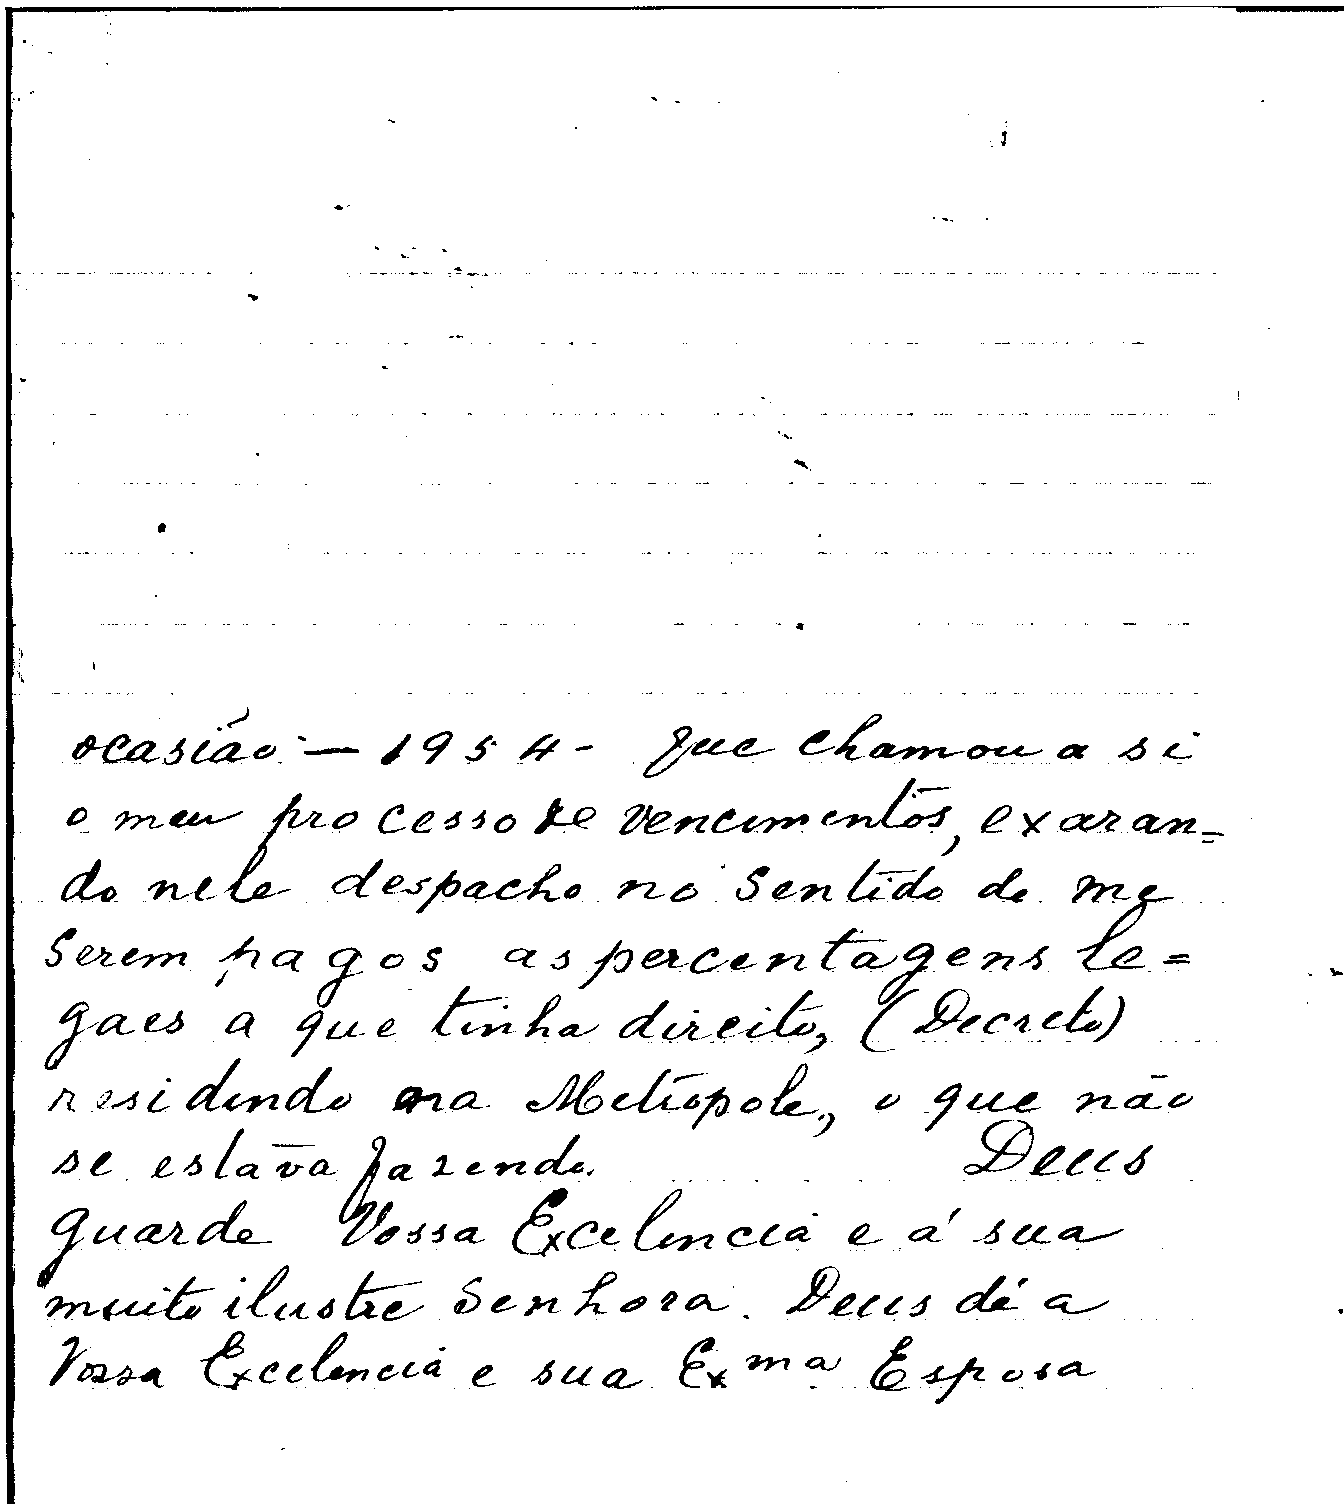 ocasião — 1954 - que chamou a si
o meu processo de vencimentos, exaran=
do nele despacho no sentido de me
serem pagos as percentagens le=
gaes a que tinha direito, (Decreto)
residindo na Metrópole, o que não
se estava fazendo. Deus
guarde Vossa Excelencia e á sua
muito ilustre Senhora. Deus dê a
Vossa Excelencia e sua Exma Esposa